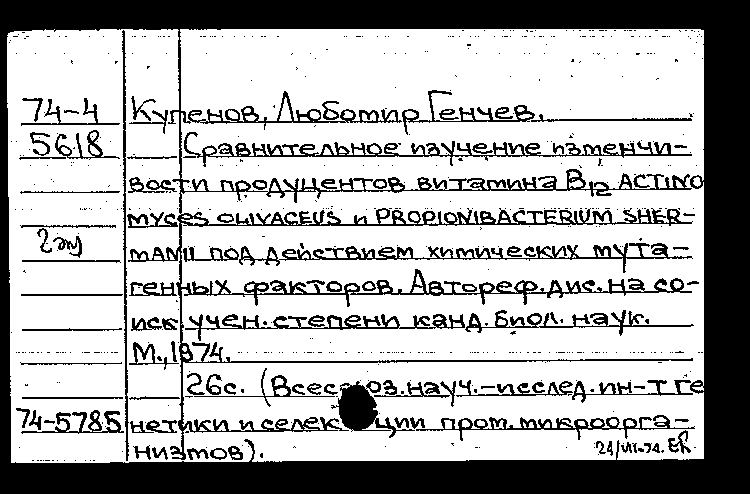 74-4 Купенов, Любомир Генчев.
5618 Сравнительное изучение изменчи-
вости продуцентов витамина B12 ACTINO
MYCES OLIVACEUS и PROPIONIBACTERIUM SHER-
2 эк MANII под действием химических мута-
генных факторов. Автореф. дис. на со-
иск. учен. степени канд. биол. наук.
М., 1974.
26с. (Всесоюз. науч.-исслед. ин-т ге
74-5785 нетики и селекции пром. микроорга-
низмов).